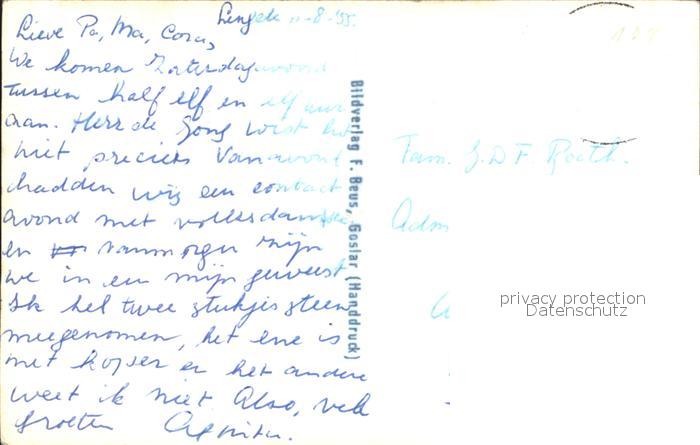 11-8-'55.
Lieve Pa, Ma, Cora,
We komen Zaterdagavond
tussen half elf en elf uur
aan. Herr de Jong wist het
niet precies Vanavond
hadden wij een contact
avond met volksdansen
en vanmorgen zijn
we in een mijn geweest
Ik heb twee stukjes steen
meegenomen, het ene is
met koper en het andere
weet ik niet Also, vele
Groeten
Bildverlag F. Beus, Goslar (Handdruck)
Fam. J.D.F.
Adm
privacy protection
Datenschutz